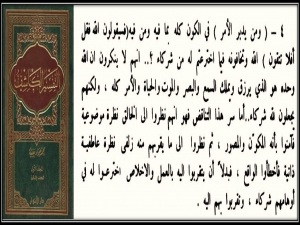 ٤ - ( ومن يدبر الأمر ) في الكون كله بما فيه ومن فيه (فسيقولون الله فقل
أفلا تتقون ) الله وتخافونه فيما اخترعتم له من شركاء ؟.. انهم لا ينكرون ان الله
وحده هو الذي يرزق ويملك السمع والبصر والموت والحياة والأمر كله ، ولكنهم
يجعلون لله شركاء.. أما سر هذا التناقض فهو انهم نظروا الى الخالق نظرة موضوعية
فآمنوا بأنه المكوّن والمصور ، ثم نظروا الى ما يقربهم منه زلفى نظرة عاطفية
ذاتية فأخطأوا الواقع ، فبدلاً أن يتقربوا اليه بالعمل والاخلاص اخترعوا له في
أوهامهم شركاء ، وتقربوا بهم اليه .
التفسير الكاشف